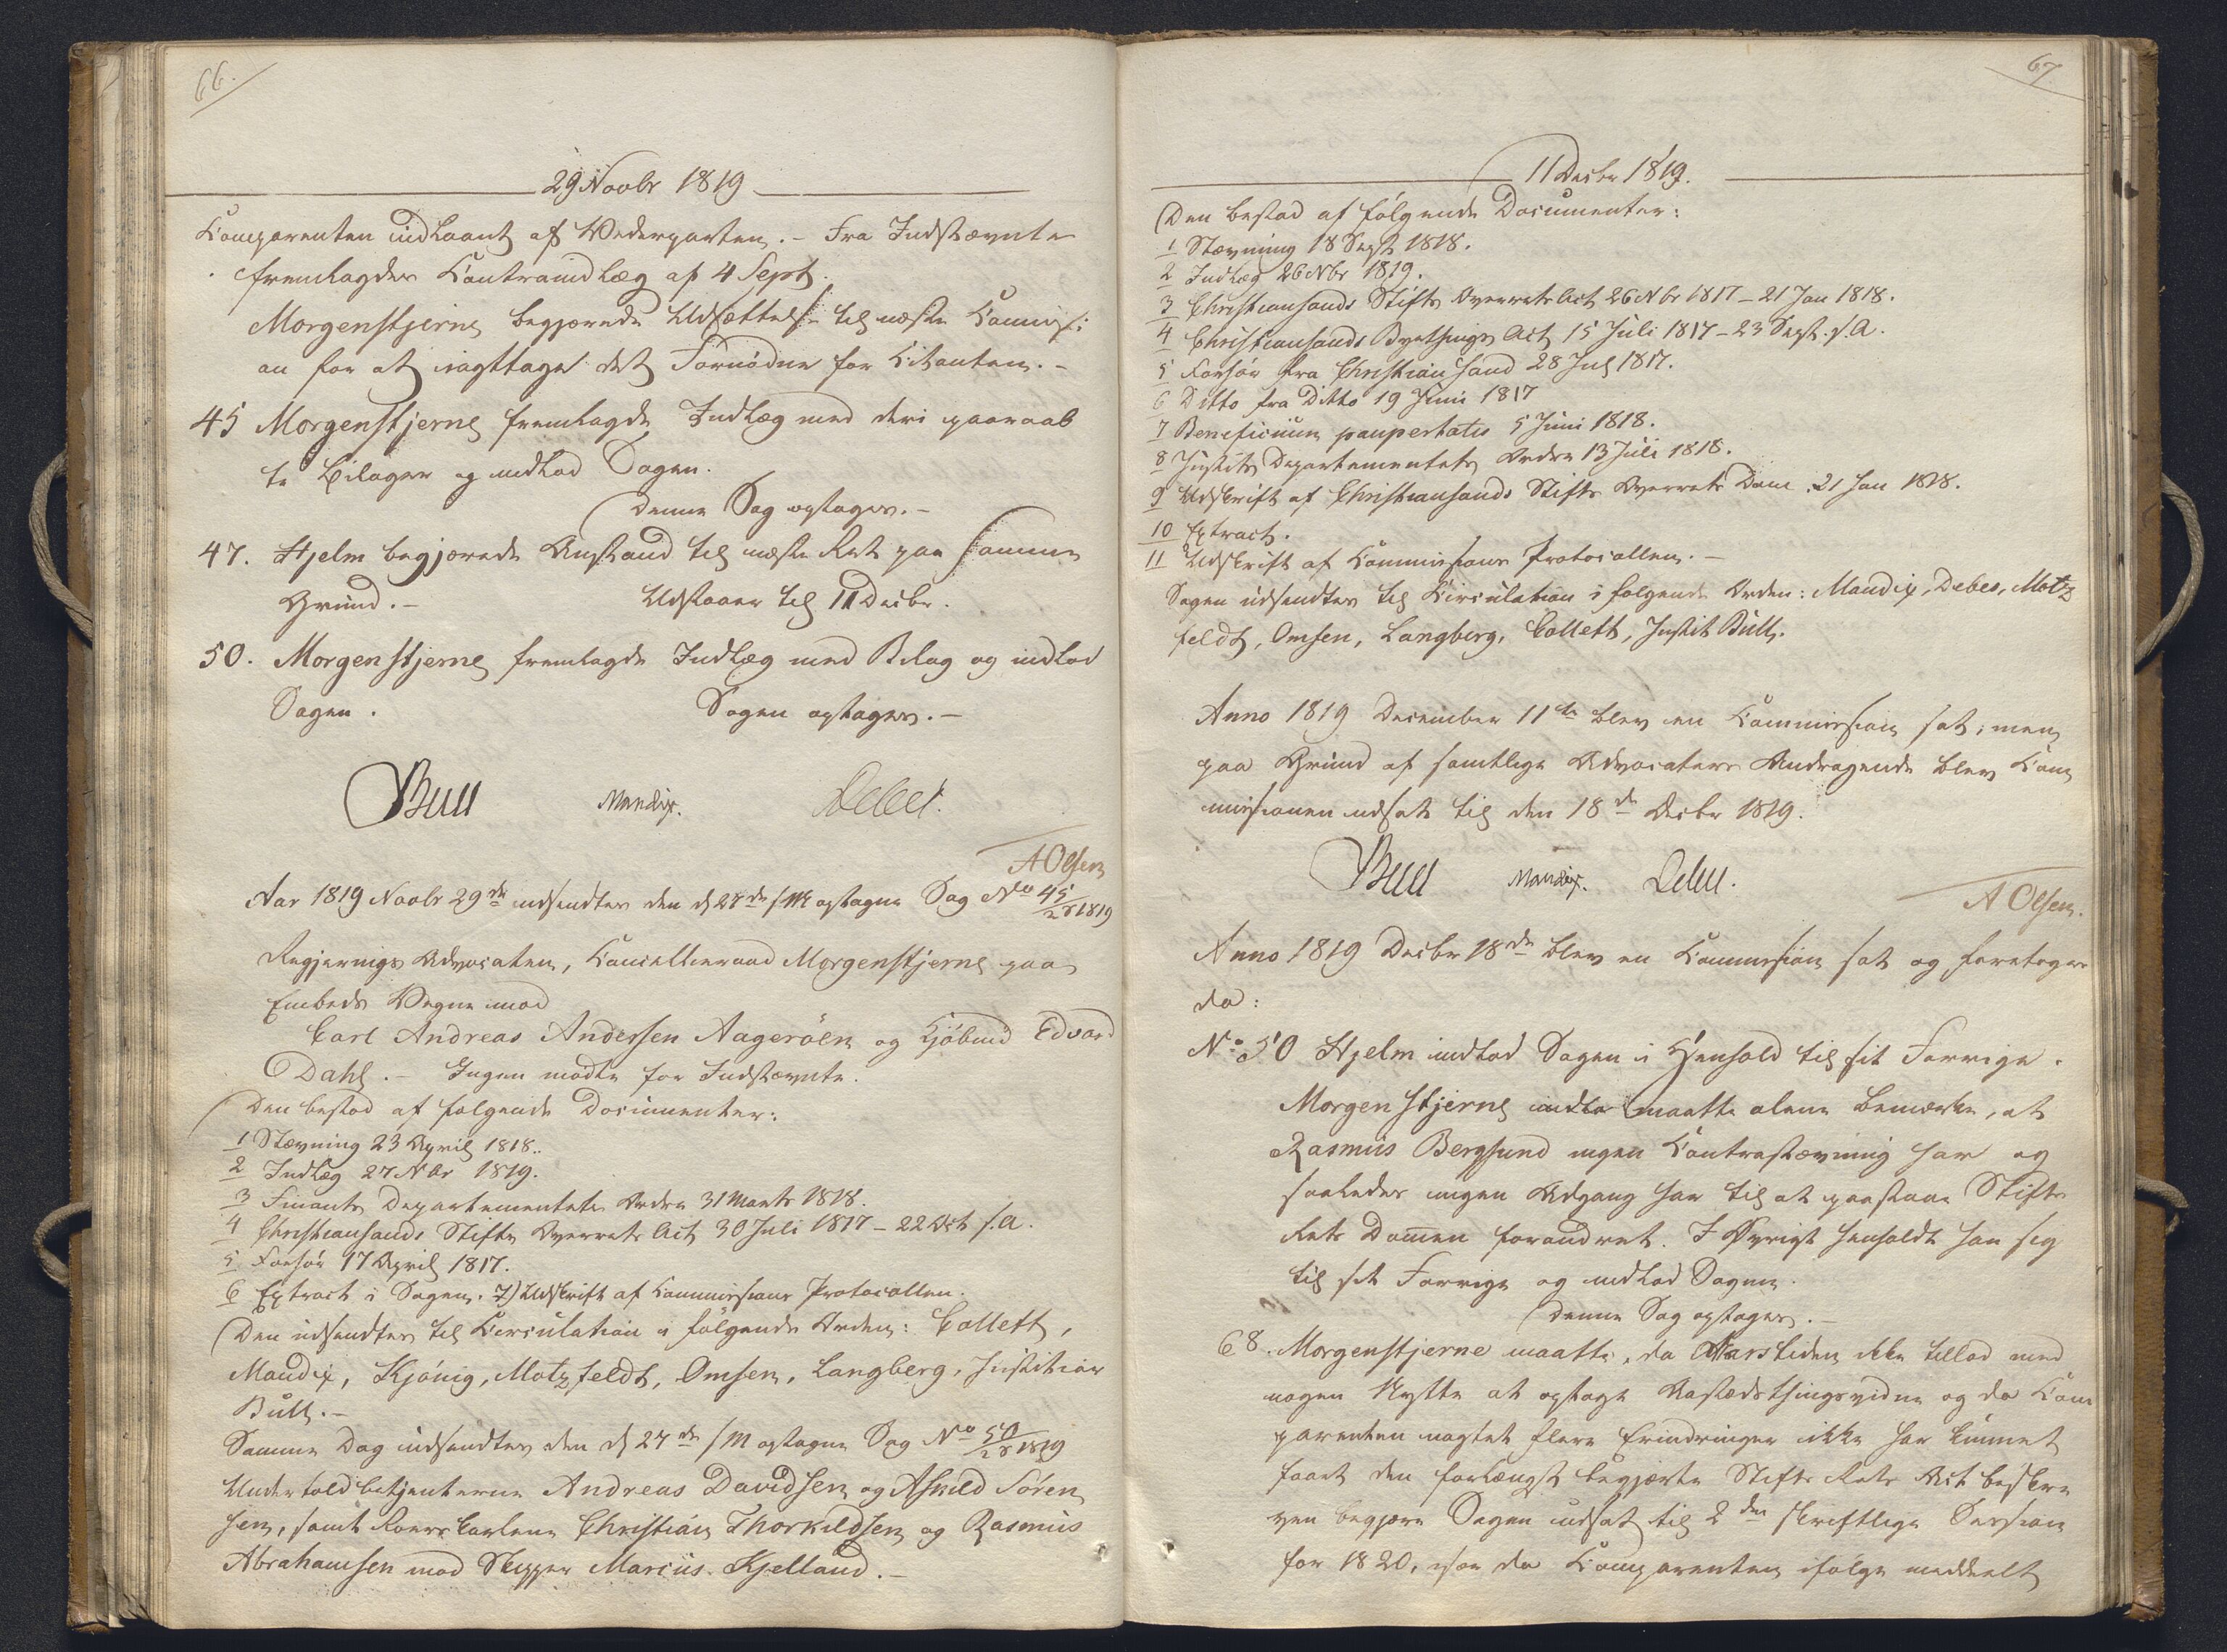 66.
29 Novbr 1819
Comparenten indhændt af Wederparten. – Fra Indstævnte
fremlagdes Contraindlæg af 4 Sept.
Morgenstjerne begjærede Udsættelse til næste Commissi:
on for at iagttage det Fornödne for Citanten. –
45 Morgenstjerne fremlagde Indlæg med deri paaraab
te Bilager og indlod Sagen.
Denne Sag optages. –
47. Hjelm begjærede Anstand til næste Ret paa samme
Grund. – Udstaaer til 11 Decbr.
50. Morgenstjerne fremlagde Indlæg med Bilag og indlod
Sagen. Sagen optages. –
Bull Mandix. Debes.
A Olsen
Aar 1819 Novbr 29de udsendtes den d 27de s M optagne Sag No 45/2 S 1819
Regjerings Advocaten, Cancellieraad Morgenstjerne paa
Embeds Wegne mod
Carl Andreas Andersen Aageröen og Kjöbmd Edvard
Dahl. – Ingen mödte for Indstævnte.
Den bestod af fölgende Documenter:
1 Stævning 23 April 1818.
2 Indlæg 27 Nbr 1819.
3 Finants Departementets Ordre 31 Marts 1818.
4 Christiansands Stifts Overrets Act 30 Juli 1817 – 22 Oct s. A.
5 Forhör 17 April 1817.
6 Extract i Sagen. 7) Udskrift af Commissions Protocollen.
Den udsendtes til Circulation i fölgende Orden: Collett,
Mandix, Kjönig, Motzfeldt, Omsen, Langberg, Justitiar
Bull. –
Samme Dag udsendtes den d 27de s M optagne Sag No 50/2 S 1819
Undertoldbetjenterne Andreas Davidsen og Asvild Sören
sen, samt Roerskarlene Christian Thorkildsen og Rasmus
Abrahamsen mod Skipper Marcus Kjelland. –
67
11 Decbr 1819.
Den bestod af fölgende Documenter:
1 Stævning 18 Sept 1818.
2 Indlæg 26 Nbr 1819.
3 Christiansands Stifts Overrets Act 26 Nbr 1817 – 21 Jan 1818.
4 Christiansands Byethings Act 15 Juli 1817 – 23 Sept. s. A.
5 Forhör fra Christiansand 28 Jul 1817.
6 Ditto fra Ditto 19 Juni 1817
7 Beneficium paupertatis 5 Juni 1818.
8 Justits Departementets Ordre 13 Juli 1818.
9 Udskrift af Christiansands Stifts Overrets Dom 21 Jan 1818.
10 Extract.
11 Udskrift af Commissions Protocollen. –
Sagen udsendtes til Circulation i fölgende Orden: Mandix, Debes, Motz
feldt, Omsen, Langberg, Collett, Justit Bull.
Anno 1819 December 11te blev en Commission sat; men
paa Grund af samtlige Advocaters Andragende blev Com
missionen udsat til den 18de Decbr 1819.
Bull Mandix. Debes.
A Olsen.
Anno 1819 Decbr 18de blev en Commission sat og foretoges
da:
No 50 Hjelm indlod Sagen i Henhold til sit Forrige.
Morgenstjerne indlo maatte alene bemærke, at
Rasmus Bergsund ingen Contrastævning har og
saaledes ingen Adgang har til at paastaae Stifts
Rets Dommen forandret. I Övrigt henholdt han sig
til sit Forrige og indlod Sagen.
Denne Sag optages. –
68. Morgenstjerne maatte, da Aarstiden ikke tillod med
nogen Nytte at optage Aastedsthingsvidne og da Com
parenten uagtet flere Erindringer ikke har kunnet
faaet den forlængst begjærte Stifts Rets Act beskre
ven begjære Sagen udsat til 2den skriftlige Session
for 1820, hvor da Comparenten ifölge meddeelt